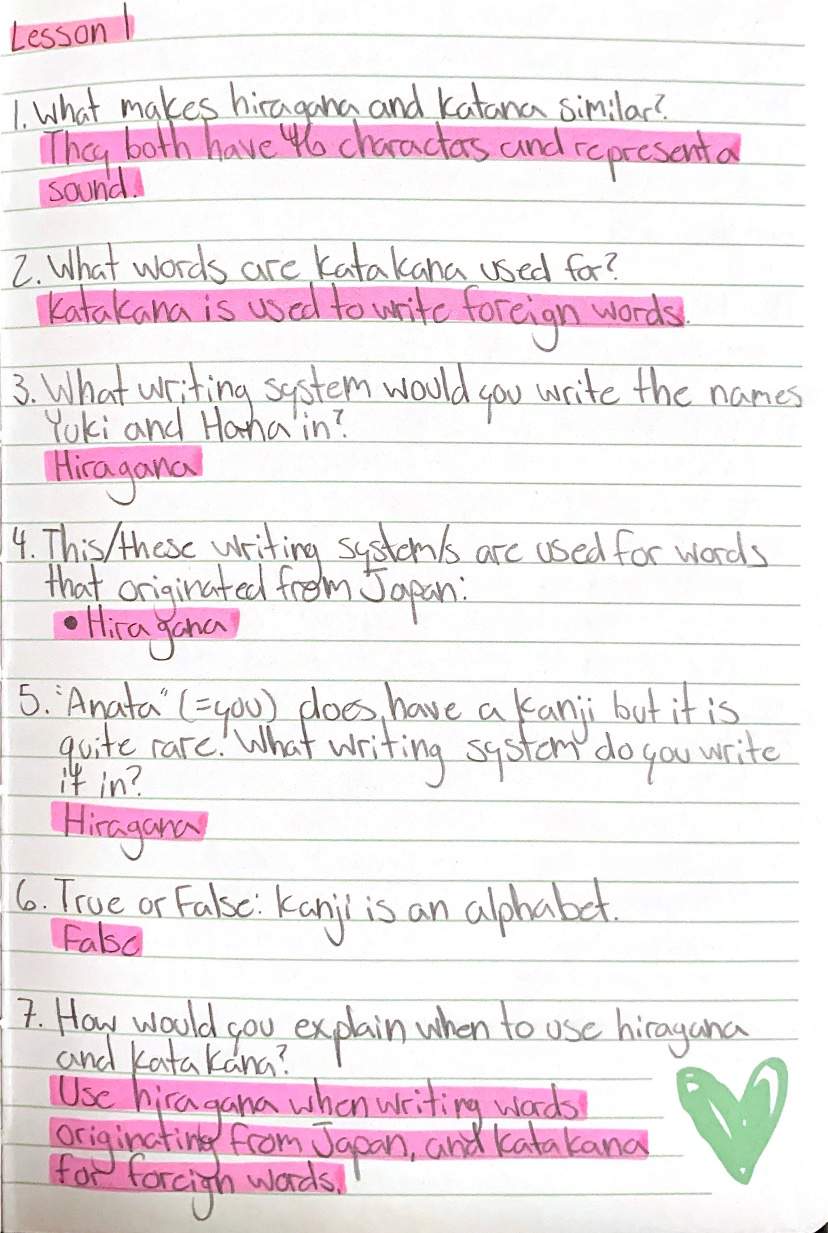 Lesson 1
1. What makes hiragana and katana similar?
They both have 46 characters and represent a
sound.
2. What words are katakana used for?
Katakana is used to write foreign words.
3. What writing system would you write the names
Yuki and Hana in?
Hiragana
4. This/these writing system/s are used for words
that originated from Japan:
• Hiragana
5. "Anata" (=you) does have a kanji but it is
quite rare. What writing system do you write
it in?
Hiragana
6. True or False: Kanji is an alphabet.
False
7. How would you explain when to use hiragana
and katakana?
Use hiragana when writing words
originating from Japan, and katakana
for foreign words.